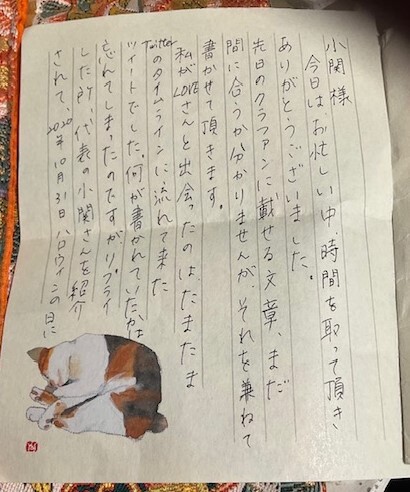 小関様
今日は、お忙しい中、時間を取って頂き
ありがとうございました。
先日のクラファンに載せる文章、まだ
間に合うか分かりませんが、それを兼ねて
書かせて頂きます。
私がLOVEさんと出会ったのは、たまたま
Twitterのタイムラインに流れて来た
ツイートでした。何が書かれていたかは
忘れてしまったのですが、リプライ
した所、代表の小関さんを紹介
されて、2020年10月31日ハロウィンの日に